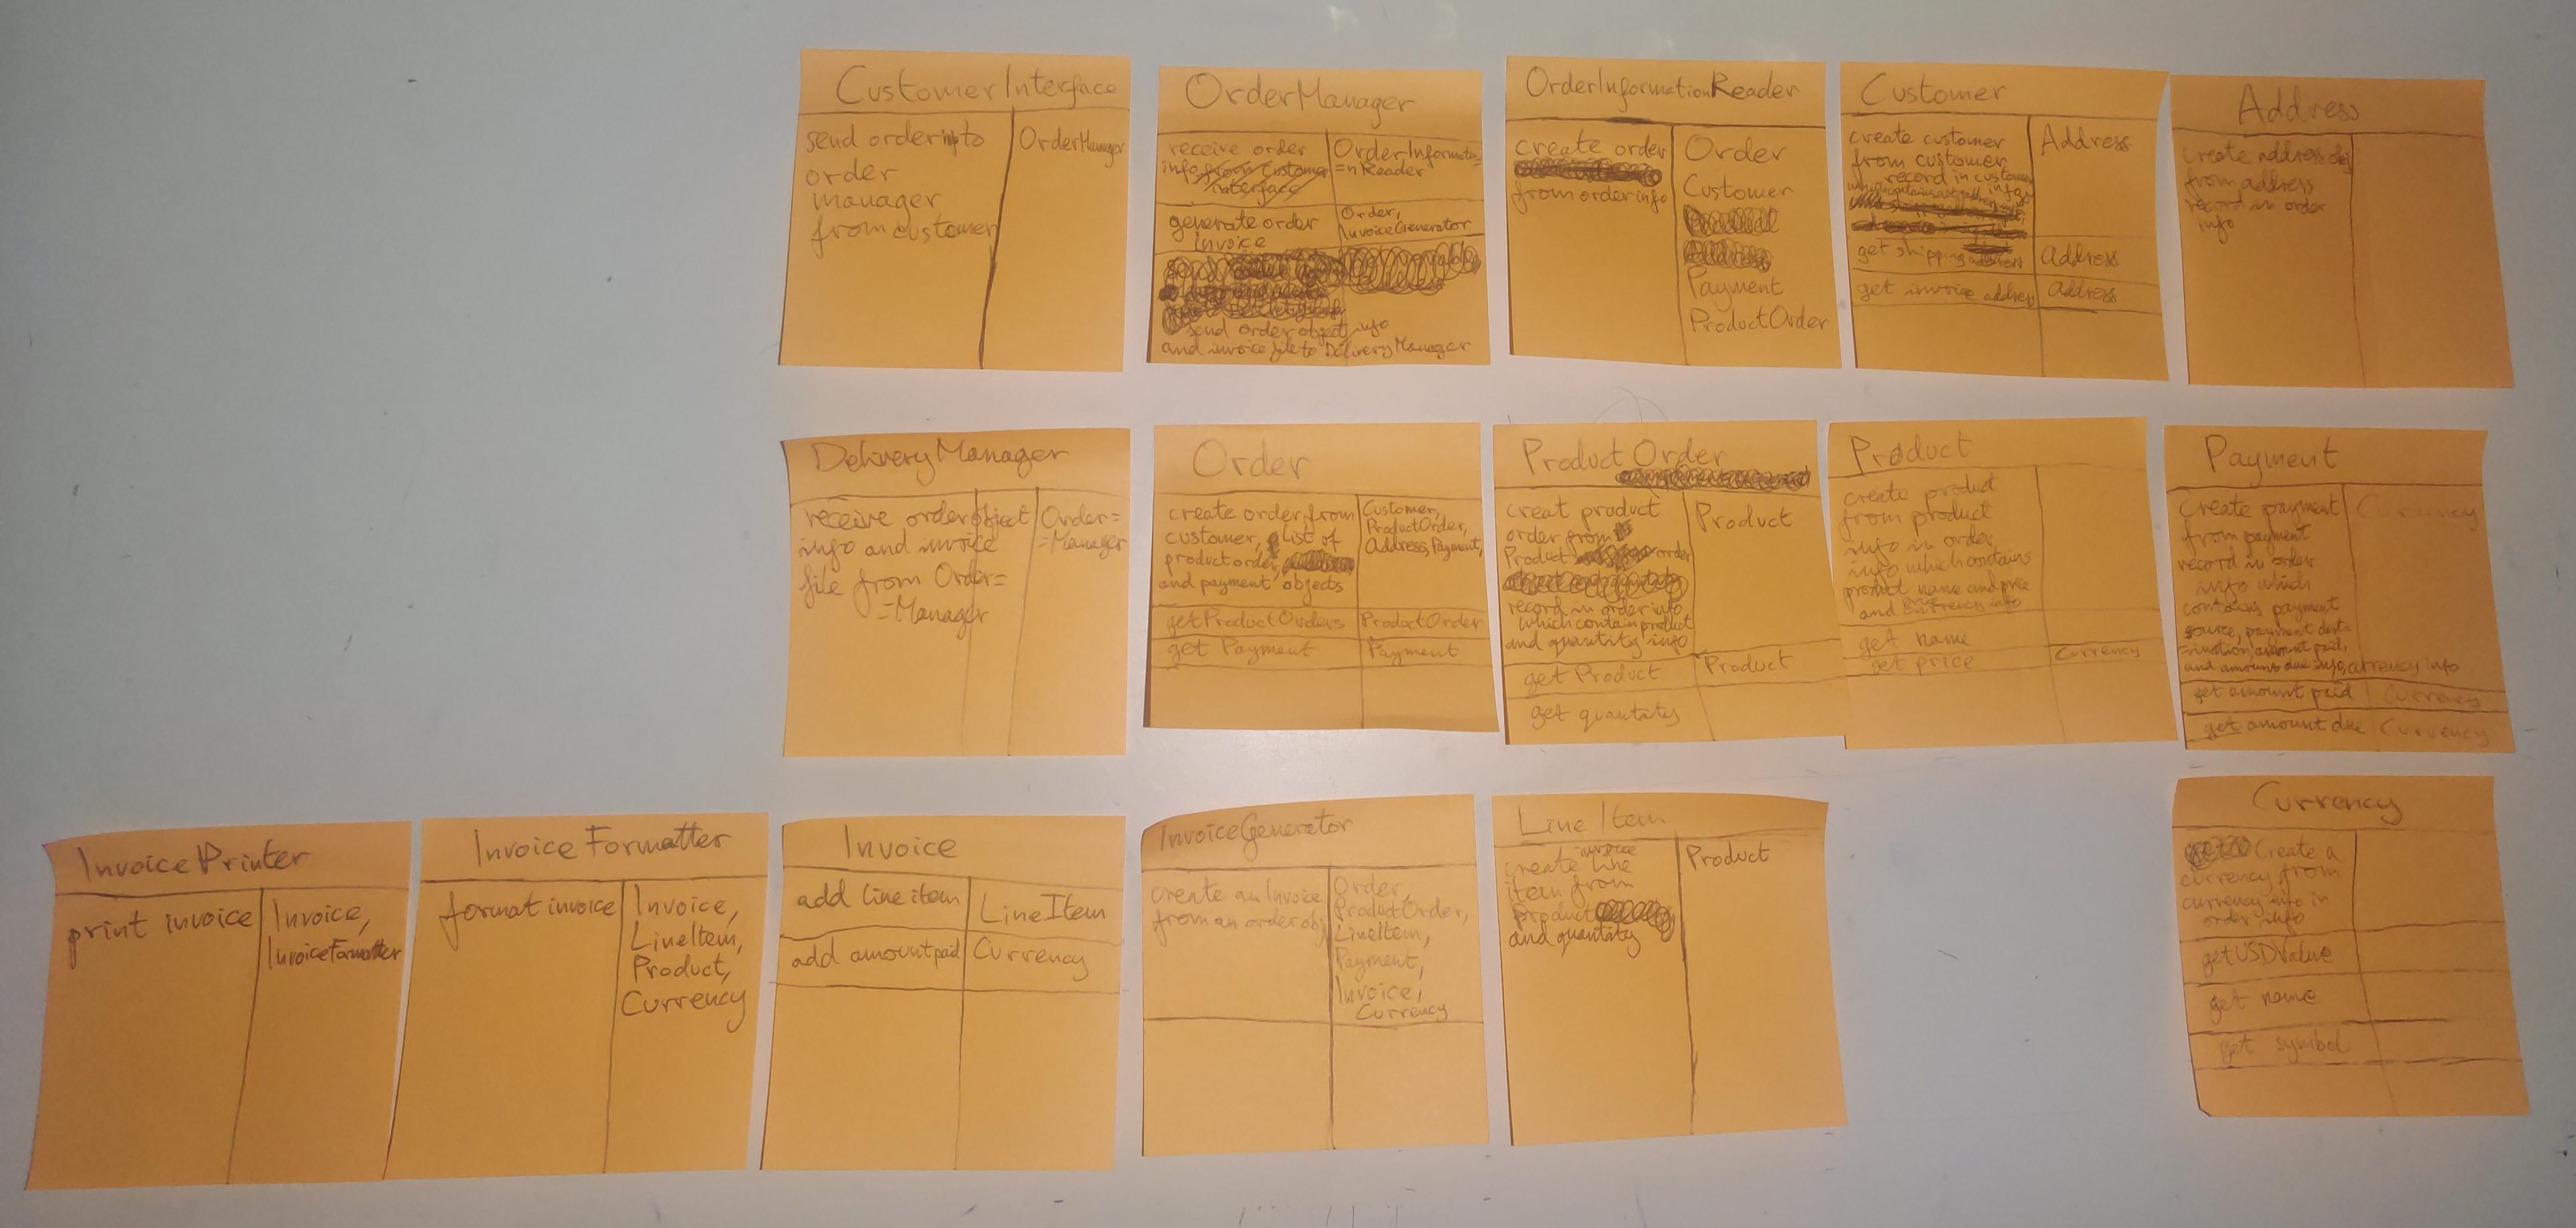 CustomerInterface
send order info to
order
manager
from customer
OrderManager
OrderManager
receive order
info from Customer
interface
OrderInformatio=
=nReader
generate order
Invoice
Order,
InvoiceGenerator
send order object info
and invoice file to DeliveryManager
OrderInformationReader
create order
from order info
Order
Customer
Payment
ProductOrder
Customer
create customer
from customer
record in customer
info
Address
get shipping address
Address
get invoice address
Address
Address
create address obj
from address
record in order
info
DeliveryManager
receive order object
info and invoice
file from Order=
=Manager
Order=
=Manager
Order
create order from
customer, list of
product order,
and payment objects
Customer,
ProductOrder,
Address, Payment,
getProductOrders
ProductOrder
get Payment
Payment
Product Order
creat product
order from
Product order
record in order info
which contain product
and quantity info
Product
get Product
Product
get quantity
Product
create product
from product
info in order
info which contains
product name and price
and currency info
get name
get price
Currency
Payment
Create payment
from payment
record in order
info which
contains payment
source, payment dest=
=ination, amount paid,
and amount due info, currency info
Currency
get amount paid
Currency
get amount due
Currency
InvoicePrinter
print invoice
Invoice,
InvoiceFormatter
Invoice Formatter
format invoice
Invoice,
LineItem,
Product,
Currency
Invoice
add line item
LineItem
add amount paid
Currency
InvoiceGenerator
create an Invoice
from an order obj
Order,
ProductOrder,
LineItem,
Payment,
Invoice,
Currency
Line Item
invoice
create line
item from
product
and quantity
Product
Currency
Create a
currency from
currency info in
order info
getUSDValue
get name
get symbol